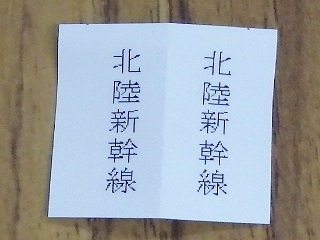 北陸新幹線
北陸新幹線